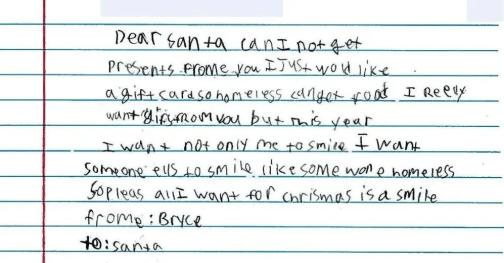 Dear santa can I not get
presents frome you I Just wold like
a gift card so homeless can get food I Reely
want gifts from you but this year
I want not only me to smile I want
someone ells to smile like some wone homeless
So pleas all I want for chrismas is a smile
frome: Bryce
to: santa